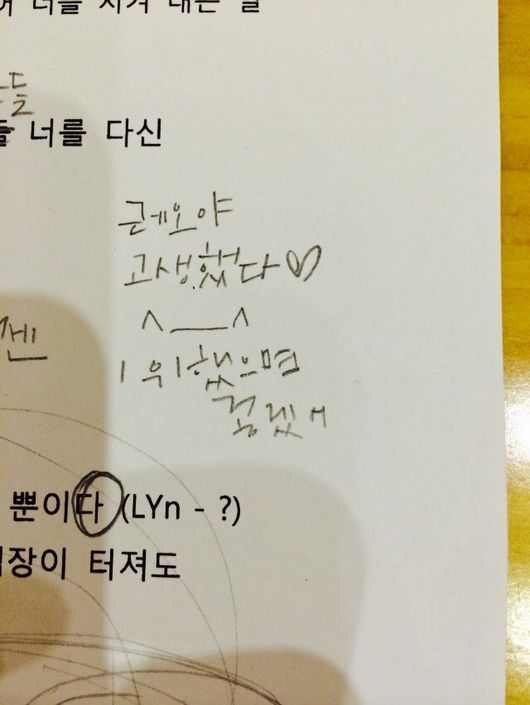 너를 지켜 내는 일
들
들 너를 다신
근데오야
고생했다♡
^__^
젠
1위했으면
좋겠어
뿐이다 (LYn - ?)
심장이 터져도